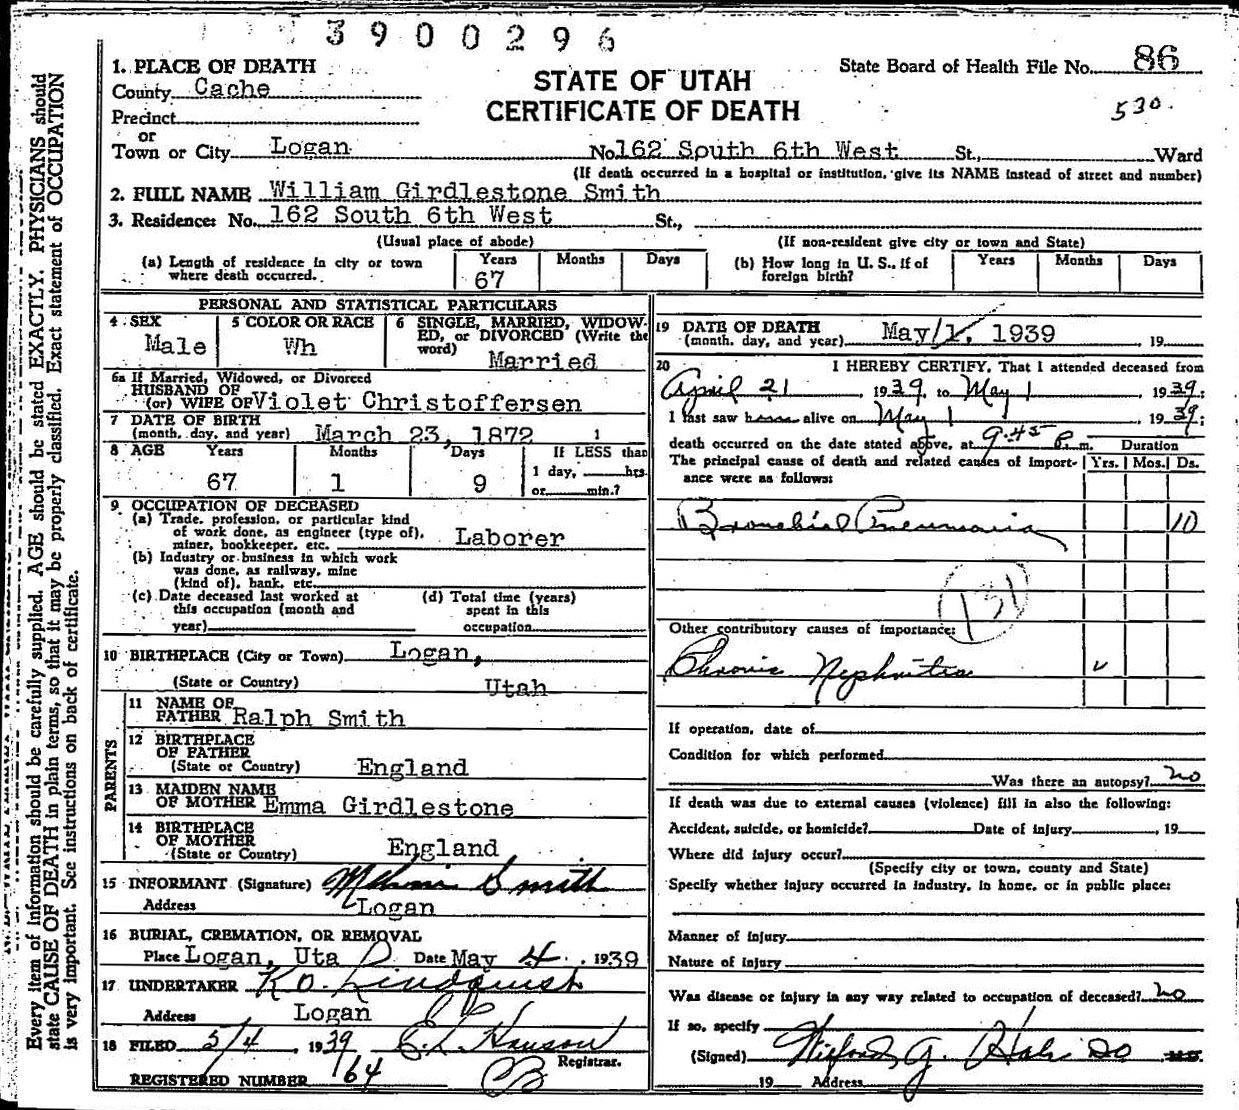 3900296
1. PLACE OF DEATH
County Cache
Precinct
or
Town or City Logan
STATE OF UTAH
CERTIFICATE OF DEATH
State Board of Health File No. 86
530.
No. 162 South 6th West St., Ward
(If death occurred in a hospital or institution, give its NAME instead of street and number)
2. FULL NAME William Girdlestone Smith
3. Residence: No. 162 South 6th West St.,
(Usual place of abode) (If non-resident give city or town and State)
(a) Length of residence in city or town where death occurred. Years 67 Months Days
(b) How long in U. S., if of foreign birth? Years Months Days
PERSONAL AND STATISTICAL PARTICULARS
4 SEX Male
5 COLOR OR RACE Wh
6 SINGLE, MARRIED, WIDOWED, or DIVORCED (Write the word) Married
6a If Married, Widowed, or Divorced
HUSBAND OF
(or) WIFE OF Violet Christoffersen
7 DATE OF BIRTH
(month, day, and year) March 23, 1872
8 AGE Years 67 Months 1 Days 9
If LESS than
1 day, hrs.
or min.?
9 OCCUPATION OF DECEASED
(a) Trade, profession, or particular kind
of work done, as engineer (type of),
miner, bookkeeper, etc. Laborer
(b) Industry or business in which work
was done, as railway, mine
(kind of), bank, etc.
(c) Date deceased last worked at
this occupation (month and
year)
(d) Total time (years)
spent in this
occupation
10 BIRTHPLACE (City or Town) Logan,
(State or Country) Utah
PARENTS
11 NAME OF
FATHER Ralph Smith
12 BIRTHPLACE
OF FATHER
(State or Country) England
13 MAIDEN NAME
OF MOTHER Emma Girdlestone
14 BIRTHPLACE
OF MOTHER
(State or Country) England
15 INFORMANT (Signature) Smith
Address Logan
16 BURIAL, CREMATION, OR REMOVAL
Place Logan, Uta Date May 4, 1939
17 UNDERTAKER K O. Lindquist
Address Logan
18 FILED 5/4, 1939 E. L. Hanson
Registrar.
REGISTERED NUMBER 164
19 DATE OF DEATH
(month, day, and year) May/1, 1939, 19
20 I HEREBY CERTIFY, That I attended deceased from
April 21 1939, to May 1, 1939;
I last saw alive on May 1, 1939;
death occurred on the date stated above, at 9:45 P. m. Duration
The principal cause of death and related causes of importance were as follows: Yrs. Mos. Ds.
Bronchial Pneumonia 10
131
Other contributory causes of importance:
Chronic Nephritis
If operation, date of
Condition for which performed
Was there an autopsy? no
If death was due to external causes (violence) fill in also the following:
Accident, suicide, or homicide? Date of injury, 19
Where did injury occur?
(Specify city or town, county and State)
Specify whether injury occurred in industry, in home, or in public place:
Manner of injury
Nature of injury
Was disease or injury in any way related to occupation of deceased? no
If so, specify
(Signed) G. DO M.D.
19 Address
Every item of information should be carefully supplied. AGE should be stated EXACTLY. PHYSICIANS should
state CAUSE OF DEATH in plain terms, so that it may be properly classified. Exact statement of OCCUPATION
is very important. See instructions on back of certificate.